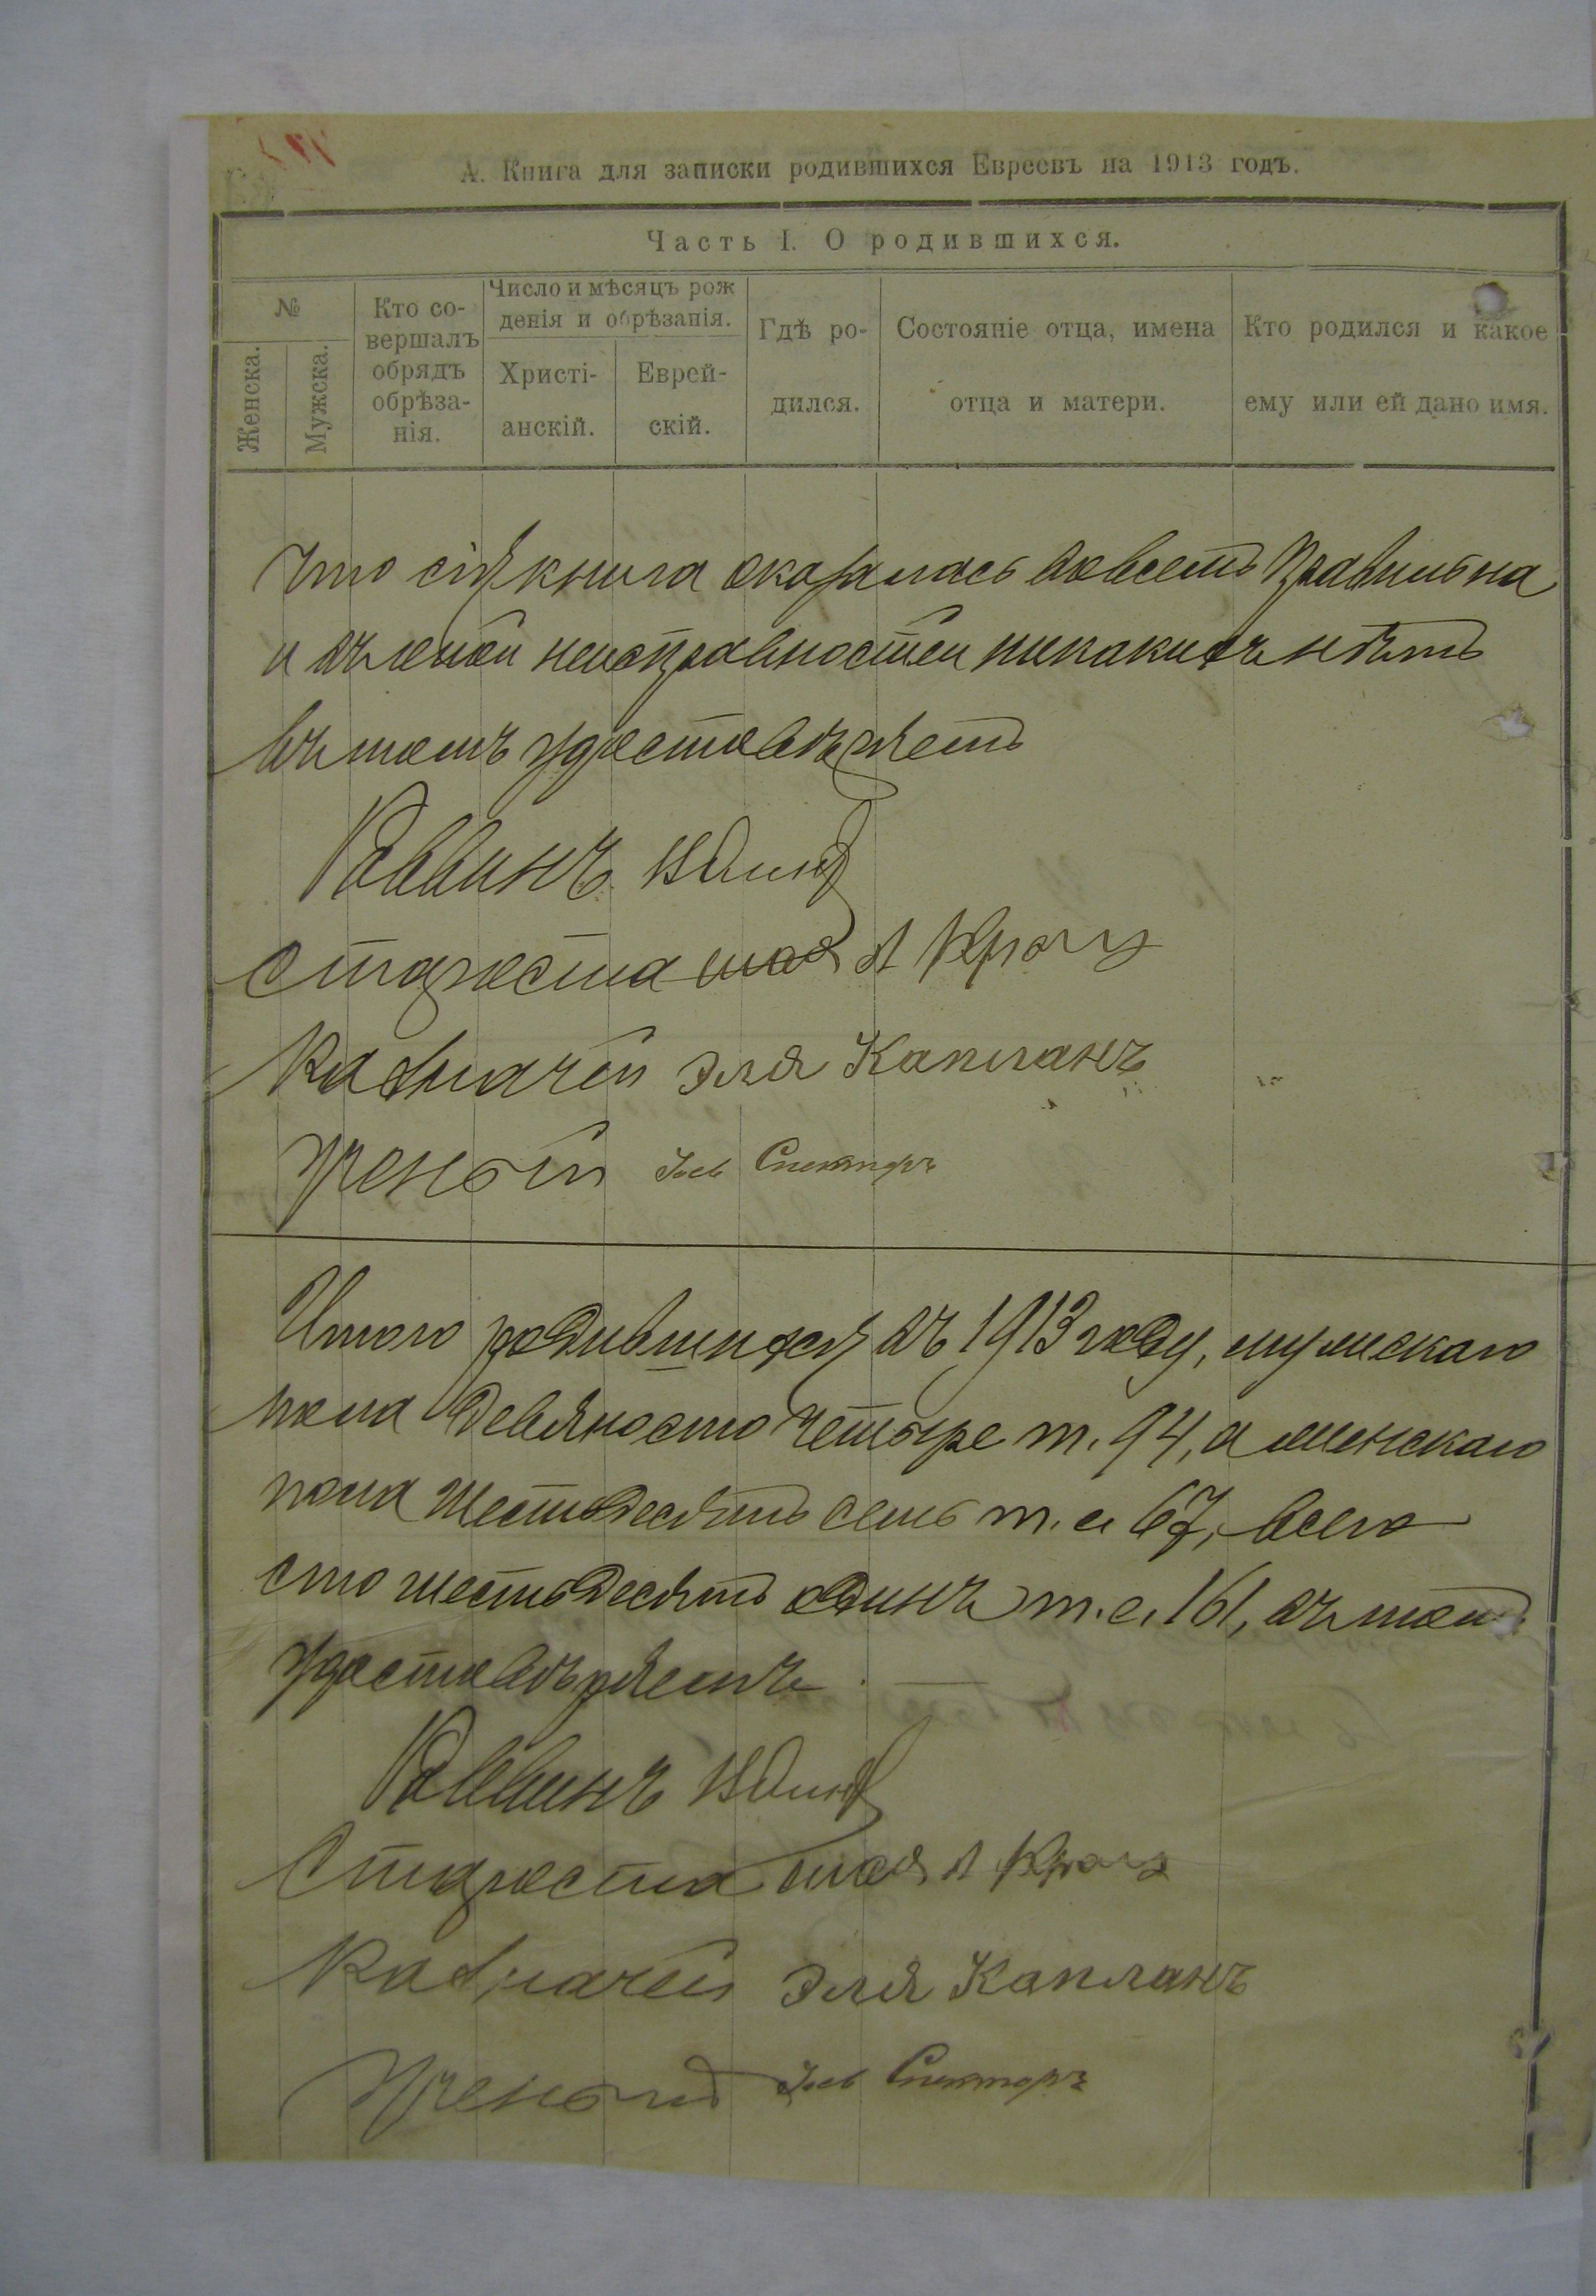 А. Книга для записки родившихся Евреевъ на 1913 годъ.
Часть I. О родившихся.
№
Женска.
Мужска.
Кто со-
вершалъ
обрядъ
обрѣза-
нія.
Число и мѣсяцъ рож
денія и обрѣзанія.
Христі-
анскій.
Еврей-
скій.
Гдѣ ро-
дился.
Состояніе отца, имена
отца и матери.
Кто родился и какое
ему или ей дано имя.
Что сія книга оказалась вовсемъ правильна
и въ неисправностей никакихъ нѣтъ
въ томъ удостовѣряемъ
Раввинъ
Староста шая
Казначей Эля Капланъ
Ученый Спекторъ
Итого родившихся въ 1913 году, мужскаго
пола девяносто четыре т. 94, а женскаго
пола шестьдесятъ семь т. е 67, всего
сто шестьдесятъ одинъ т. е. 161, въ томъ
удостовѣряемъ
Раввинъ
Староста шая
Казначей Эля Капланъ
Ученый Спекторъ